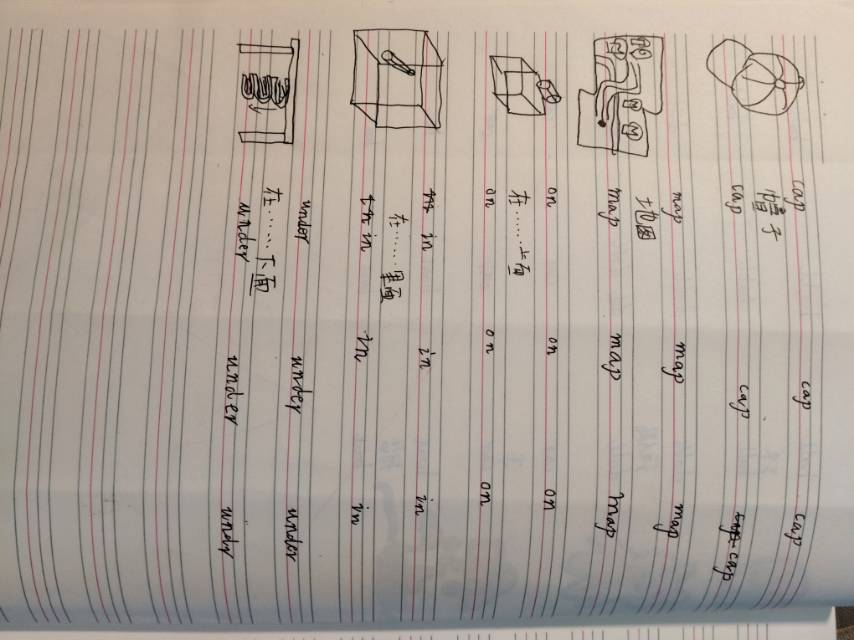 cap cap cap
帽子
cap cap cap
map map map
地图
map map map
on on on
在……上面
on on on
in in in
在……里面
in in in
under under under
在……下面
under under undr